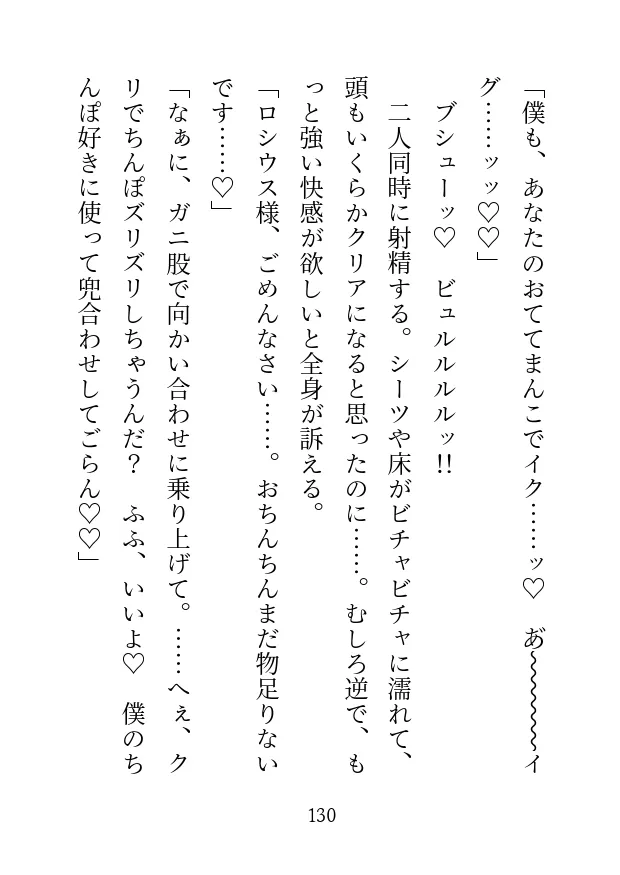 「僕も、あなたのおててまんこでイク……ッ♡　あ゛〜〜〜〜〜〜イ
グ……ッッ♡♡」
　ブシューッ♡　ビュルルルルッ!!
　二人同時に射精する。シーツや床がビチャビチャに濡れて、
頭もいくらかクリアになると思ったのに……。むしろ逆で、も
っと強い快感が欲しいと全身が訴える。
「ロシウス様、ごめんなさい……。おちんちんまだ物足りない
です……♡」
「なぁに、ガニ股で向かい合わせに乗り上げて。……へぇ、ク
リでちんぽズリズリしちゃうんだ？　ふふ、いいよ♡　僕のち
んぽ好きに使って兜合わせしてごらん♡♡」
130